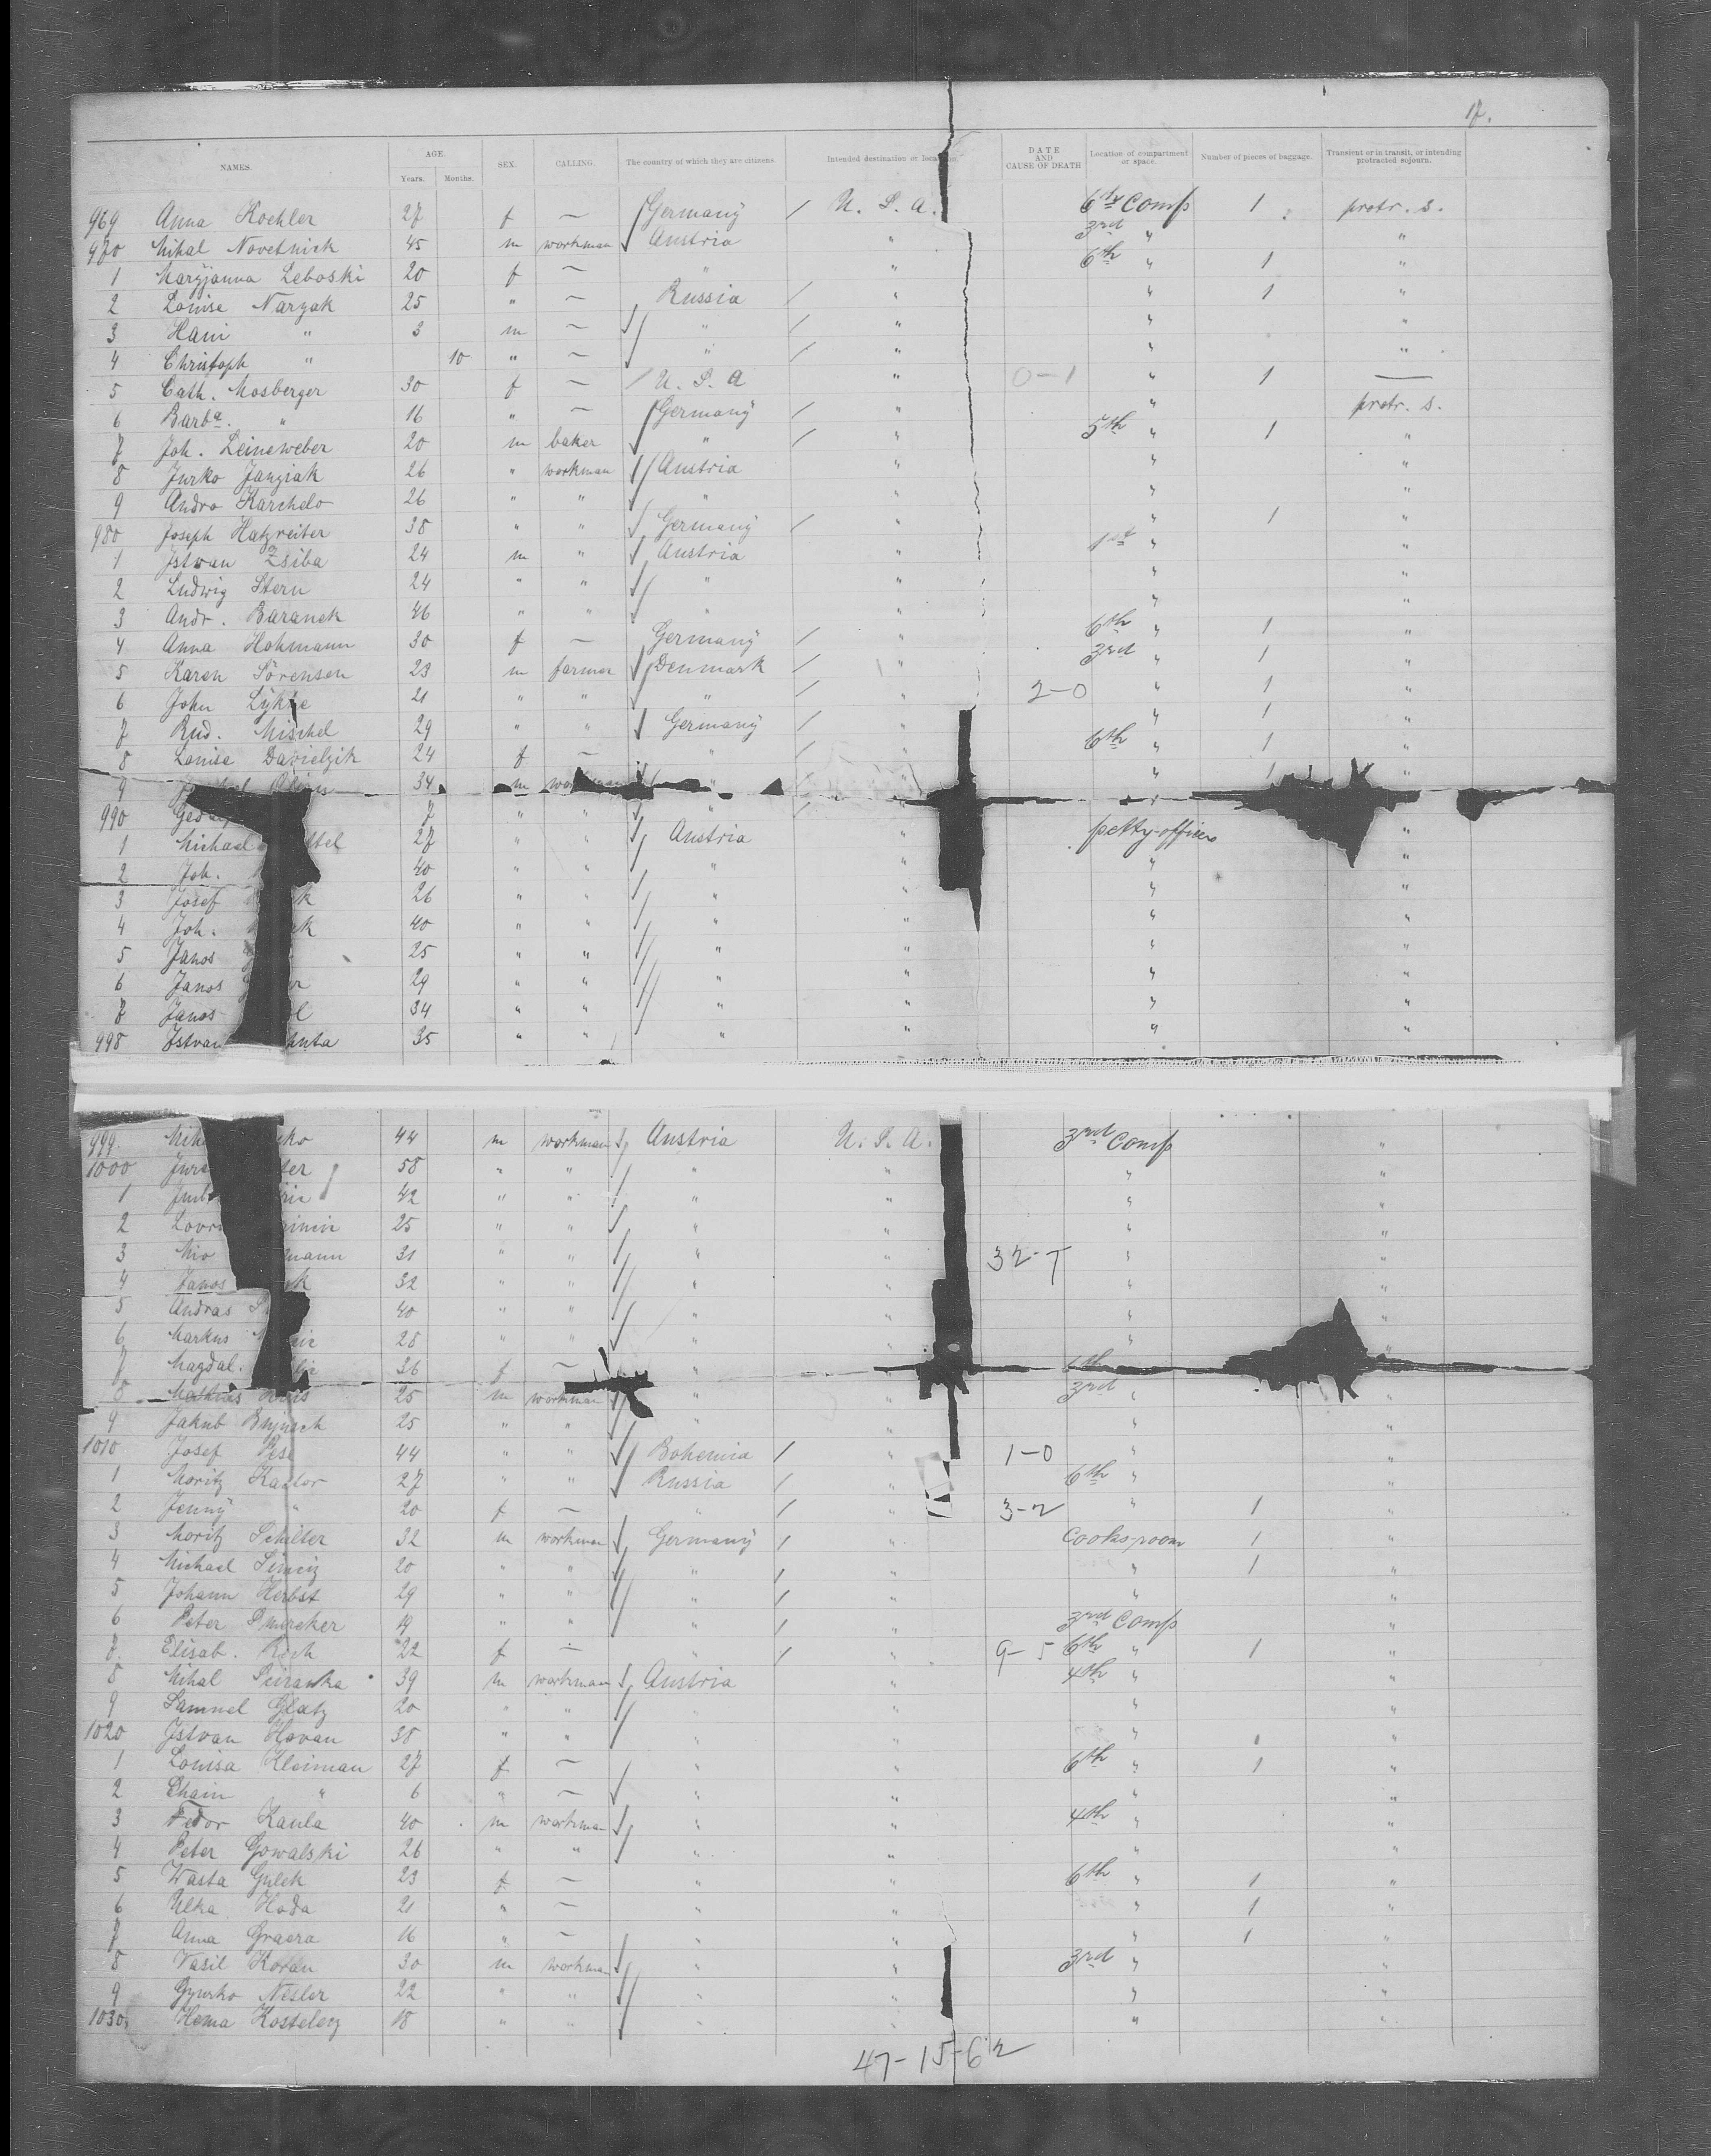 17.
NAMES. AGE. Years. Months. SEX. CALLING. The country of which they are citizens. Intended destination or DATE AND CAUSE OF DEATH Location of compartment or space. Number of pieces of baggage. Transient or in transit, or intending protracted sojourn.
969 Anna Koehler 27 f — Germany / U. S. A. 6th Comp 1 protr. s.
970 Mihal Novetnick 45 m workman Austria " 3rd " "
1 Maryjanna Leboski 20 f — " " 6th " 1 "
2 Louise Naryak 25 " — Russia / " " 1 "
3 Hani " 3 m — " / " " "
4 Christoph " 10 " — " / " " "
5 Cath. Mosberger 30 f — U. S. A " 0-1 " 1 —
6 Barba. " 16 " — Germany / " " protr. s.
7 Joh. Leineweber 20 m baker " / " 5th " 1 "
8 Jurko Janziak 26 " workman Austria " " "
9 Andro Karchelo 26 " " " " " "
980 Joseph Hatzreiter 38 " " Germany / " " 1 "
1 Istvan Zsiba 24 m " Austria " 1st " "
2 Ludwig Stern 24 " " " " " "
3 Andr. Baranek 46 " " " " " "
4 Anna Hohmann 30 f — Germany / " 6th " 1 "
5 Karen Sörensen 23 m farmer Denmark / " 3rd " 1 "
6 John 21 " " " / " 2-0 " 1 "
7 Rud. Mischel 29 " " Germany / " " 1 "
8 Louise Davielzik 24 f — " / " 6th " 1 "
9 34 m " " " 1 "
990 7 " " " / " "
1 Michael 27 " " Austria " petty-officers "
2 Joh. 40 " " " " " "
3 Josef 26 " " " " " "
4 Joh. 40 " " " " " "
5 Janos 25 " " " " " "
6 Janos 29 " " " " " "
7 Janos 34 " " " " " "
998 Istvan 35 " " " " " "
999 44 m workman Austria U. S. A. 3rd Comp "
1000 58 " " " " " "
1 42 " " " " " "
2 25 " " " " " "
3 31 " " " " 32-7 " "
4 Janos 32 " " " " " "
5 Andras 40 " " " " " "
6 Markus 28 " " " " " "
7 Magdal. 36 f — " "
8 Mathias 25 m workman " " 3rd " "
9 Jakub 25 " " " " " "
1010 Josef Pesl 44 " " Bohemia / " 1-0 " "
1 Moritz Kastor 27 " " Russia / " 6th " "
2 Jenny " 20 f — " / " 3-2 " 1 "
3 Moritz Schilter 32 m workman Germany / " Cooks-room 1 "
4 Michael 20 " " " / " " 1 "
5 Johann Herbst 29 " " " / " " "
6 Peter 19 " " " / " 3rd Comp "
7 Elisab. Rich 22 f — " / " 9-5 6th " 1 "
8 Mihal 39 m workman Austria " 4th " "
9 Samuel Glatz 20 " " " " " "
1020 Istvan Hovan 38 " " " " " "
1 Louisa Kleiman 27 f — " " 6th " 1 "
2 Chain " 6 " — " " " "
3 Fedor Kaula 40 m workman " " 4th " "
4 Peter Gowalski 26 " " " " " "
5 Wasta Gulek 23 f — " " 6th " 1 "
6 Ulka Hoda 21 " — " " " 1 "
7 Anna Graera 16 " — " " " 1 "
8 Vasil Koran 30 m workman " " 3rd " "
9 Gyurko Nesler 22 " " " " " "
1030. Hema Kostelezy 18 " " " " " "
47-15-62